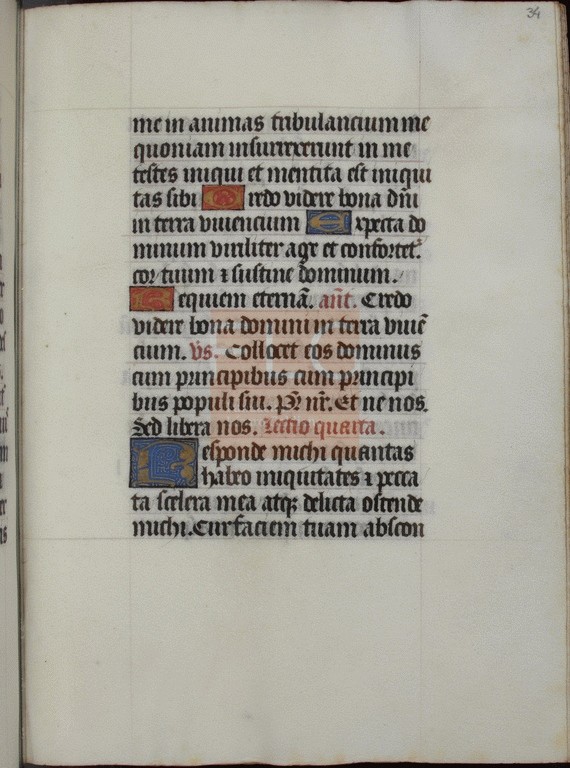 34
me in animas tribulancium me
quoniam insurrexerunt in me
testes iniqui et mentita est iniqui
tas sibi Credo videre bona dñi
in terra viuencium Expecta do
minum viriliter age et confortet˜
cor tuum ⁊ sustine dominum.
Requiem eternā. añt. Credo
videre bona domini in terra viuē
cium. vs. Collocet eos dominus
cum principibus cum principi
bus populi sui. Pr̄ nr̄. Et ne nos.
Sed libera nos. Lectio quarta.
Responde michi quantas
habeo iniquitates ⁊ pecca
ta scelera mea atqꝫ delicta ostende
michi. Cur faciem tuam abscon